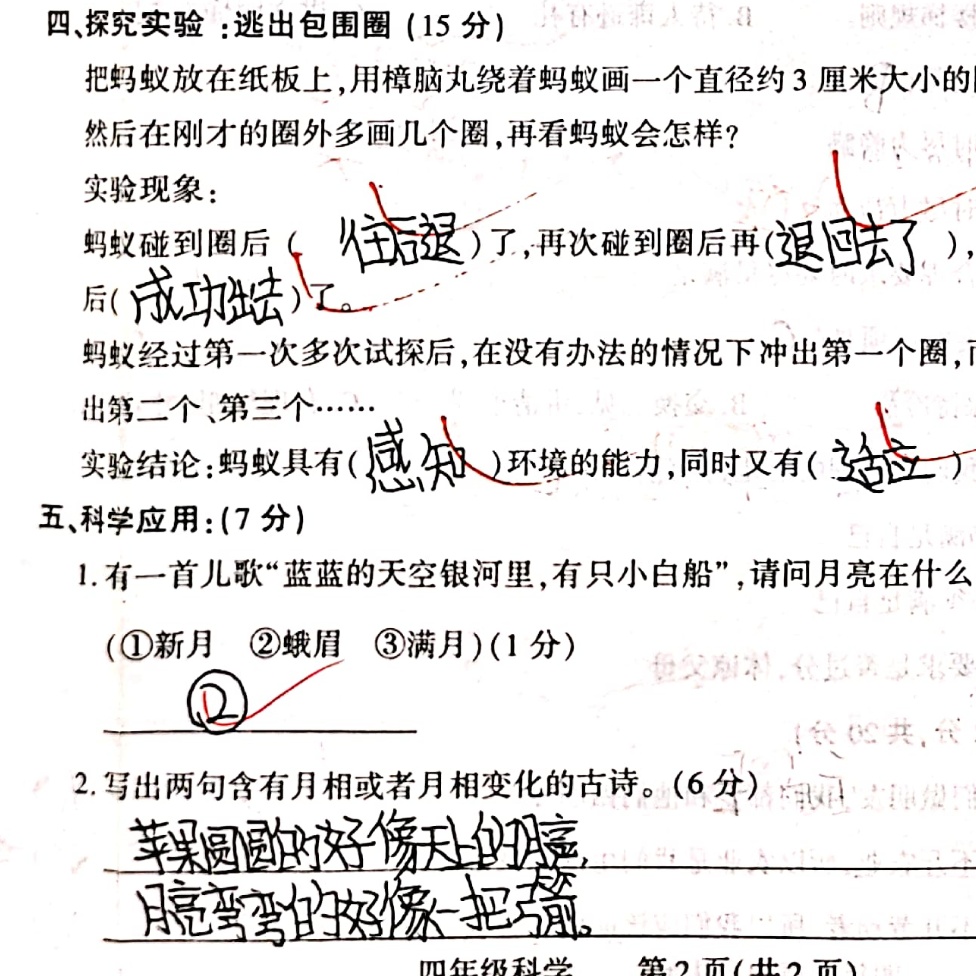 四、探究实验:逃出包围圈(15分)
把蚂蚁放在纸板上,用樟脑丸绕着蚂蚁画一个直径约3厘米大小的
然后在刚才的圈外多画几个圈,再看蚂蚁会怎样?
实验现象:
蚂蚁碰到圈后(往后退)了,再次碰到圈后再(退回去了),
后(成功出去)了。
蚂蚁经过第一次多次试探后,在没有办法的情况下冲出第一个圈,
出第二个、第三个……
实验结论:蚂蚁具有(感知)环境的能力,同时又有(适应)
五、科学应用:(7分)
1.有一首儿歌“蓝蓝的天空银河里,有只小白船”,请问月亮在什么
(①新月 ②蛾眉 ③满月)(1分)
②
2.写出两句含有月相或者月相变化的古诗。(6分)
苹果圆圆的好像天上的明亮,
月亮弯弯的好像一把弓箭。
四年级科学 第2页(共2页)